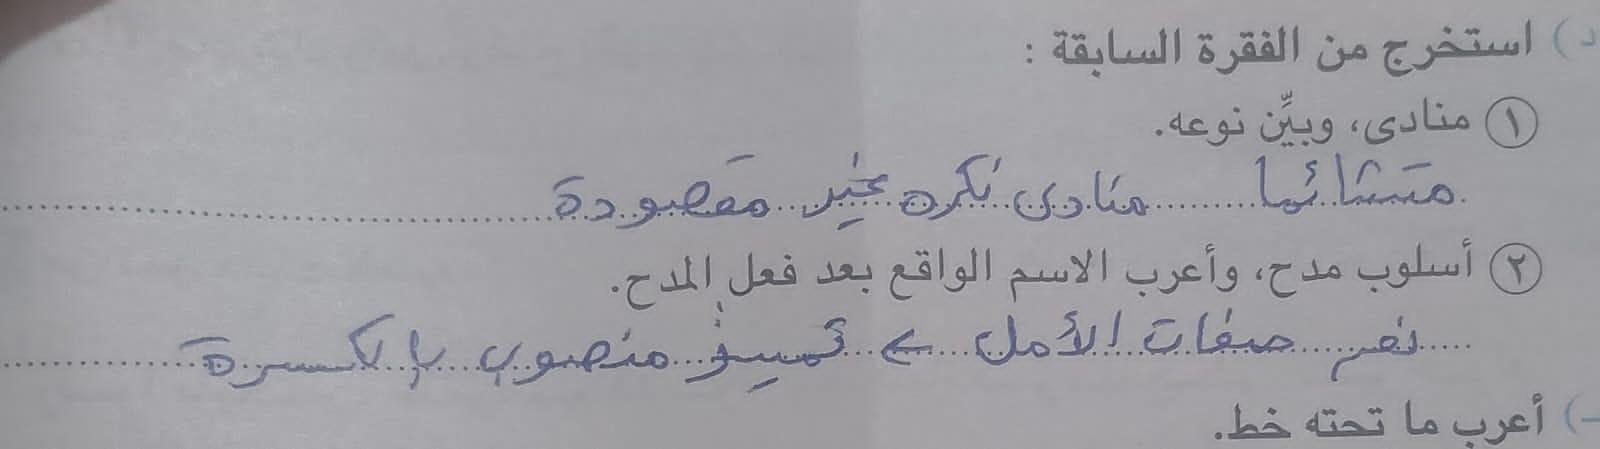 د) استخرج من الفقرة السابقة :
١ منادى، وبيِّن نوعه.
متشائما منادى نكره غير مقصودة
٢ أسلوب مدح، وأعرب الاسم الواقع بعد فعل المدح.
نعم صفات الأمل ← تمييز منصوب بالكسرة
) أعرب ما تحته خط.